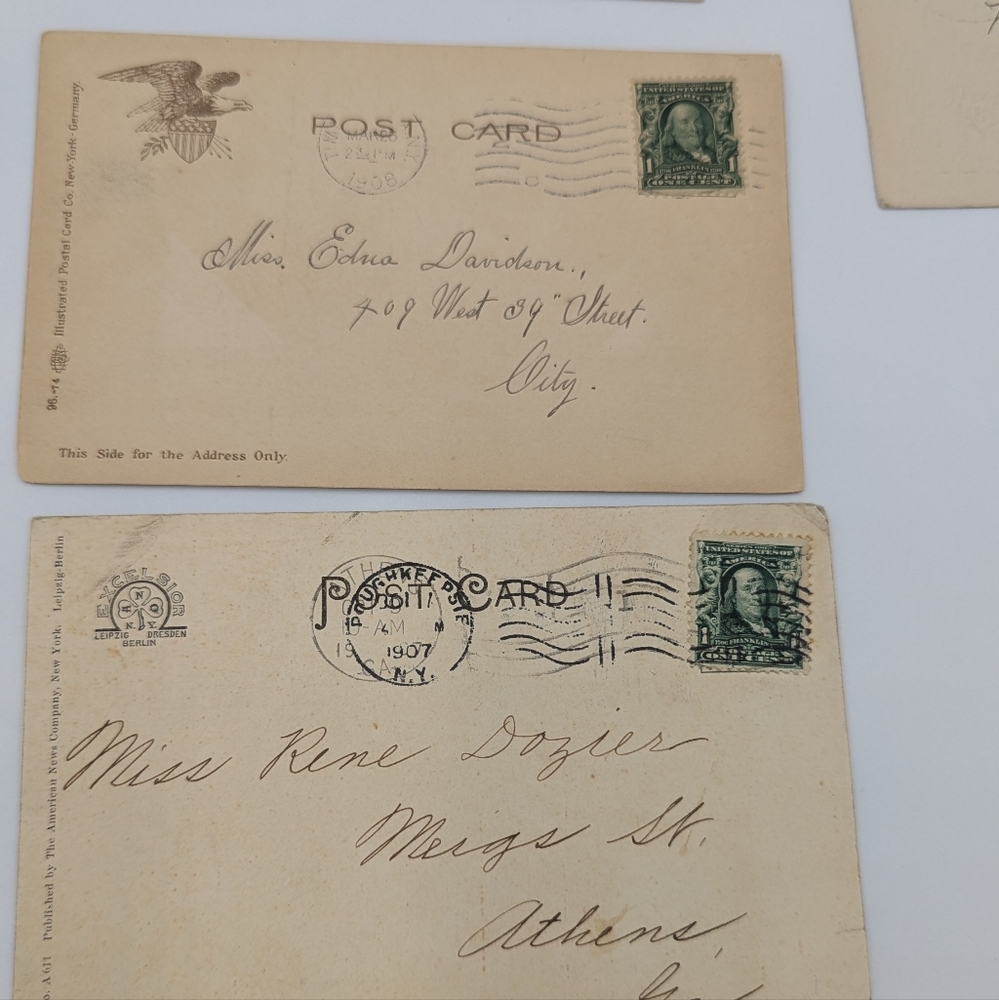 POST CARD
MAR 26
1908
UNITED STATES OF
AMERICA
1 FRANKLIN 1
POSTAGE
ONE CENT
Miss. Edna Davidson.,
409 West 39" Street.
City.
96.-74 Illustrated Postal Card Co. New-York-Germany.
This Side for the Address Only.
Published by The American News Company, New York. Leipzig-Berlin
EXCELSIOR
A N C
N. Y.
LEIPZIG DRESDEN
BERLIN
POST CARD
POUGHKEEPSIE
1907
N.Y.
-AM
UNITED STATES OF
AMERICA
1 FRANKLIN
ONE CENT
Miss Rene Dozier
Meigs St.
Athens,
Ga